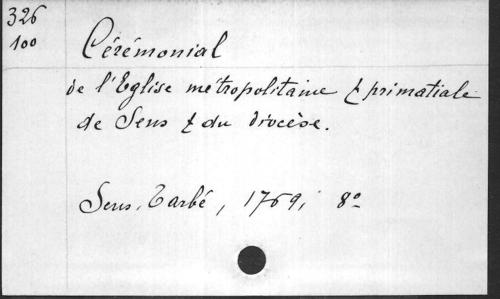 326
100
Cérémonial
de l'Eglise métropolitaine & primatiale
de Sens & du diocèse.
Sens, Tarbé, 1769, 8º